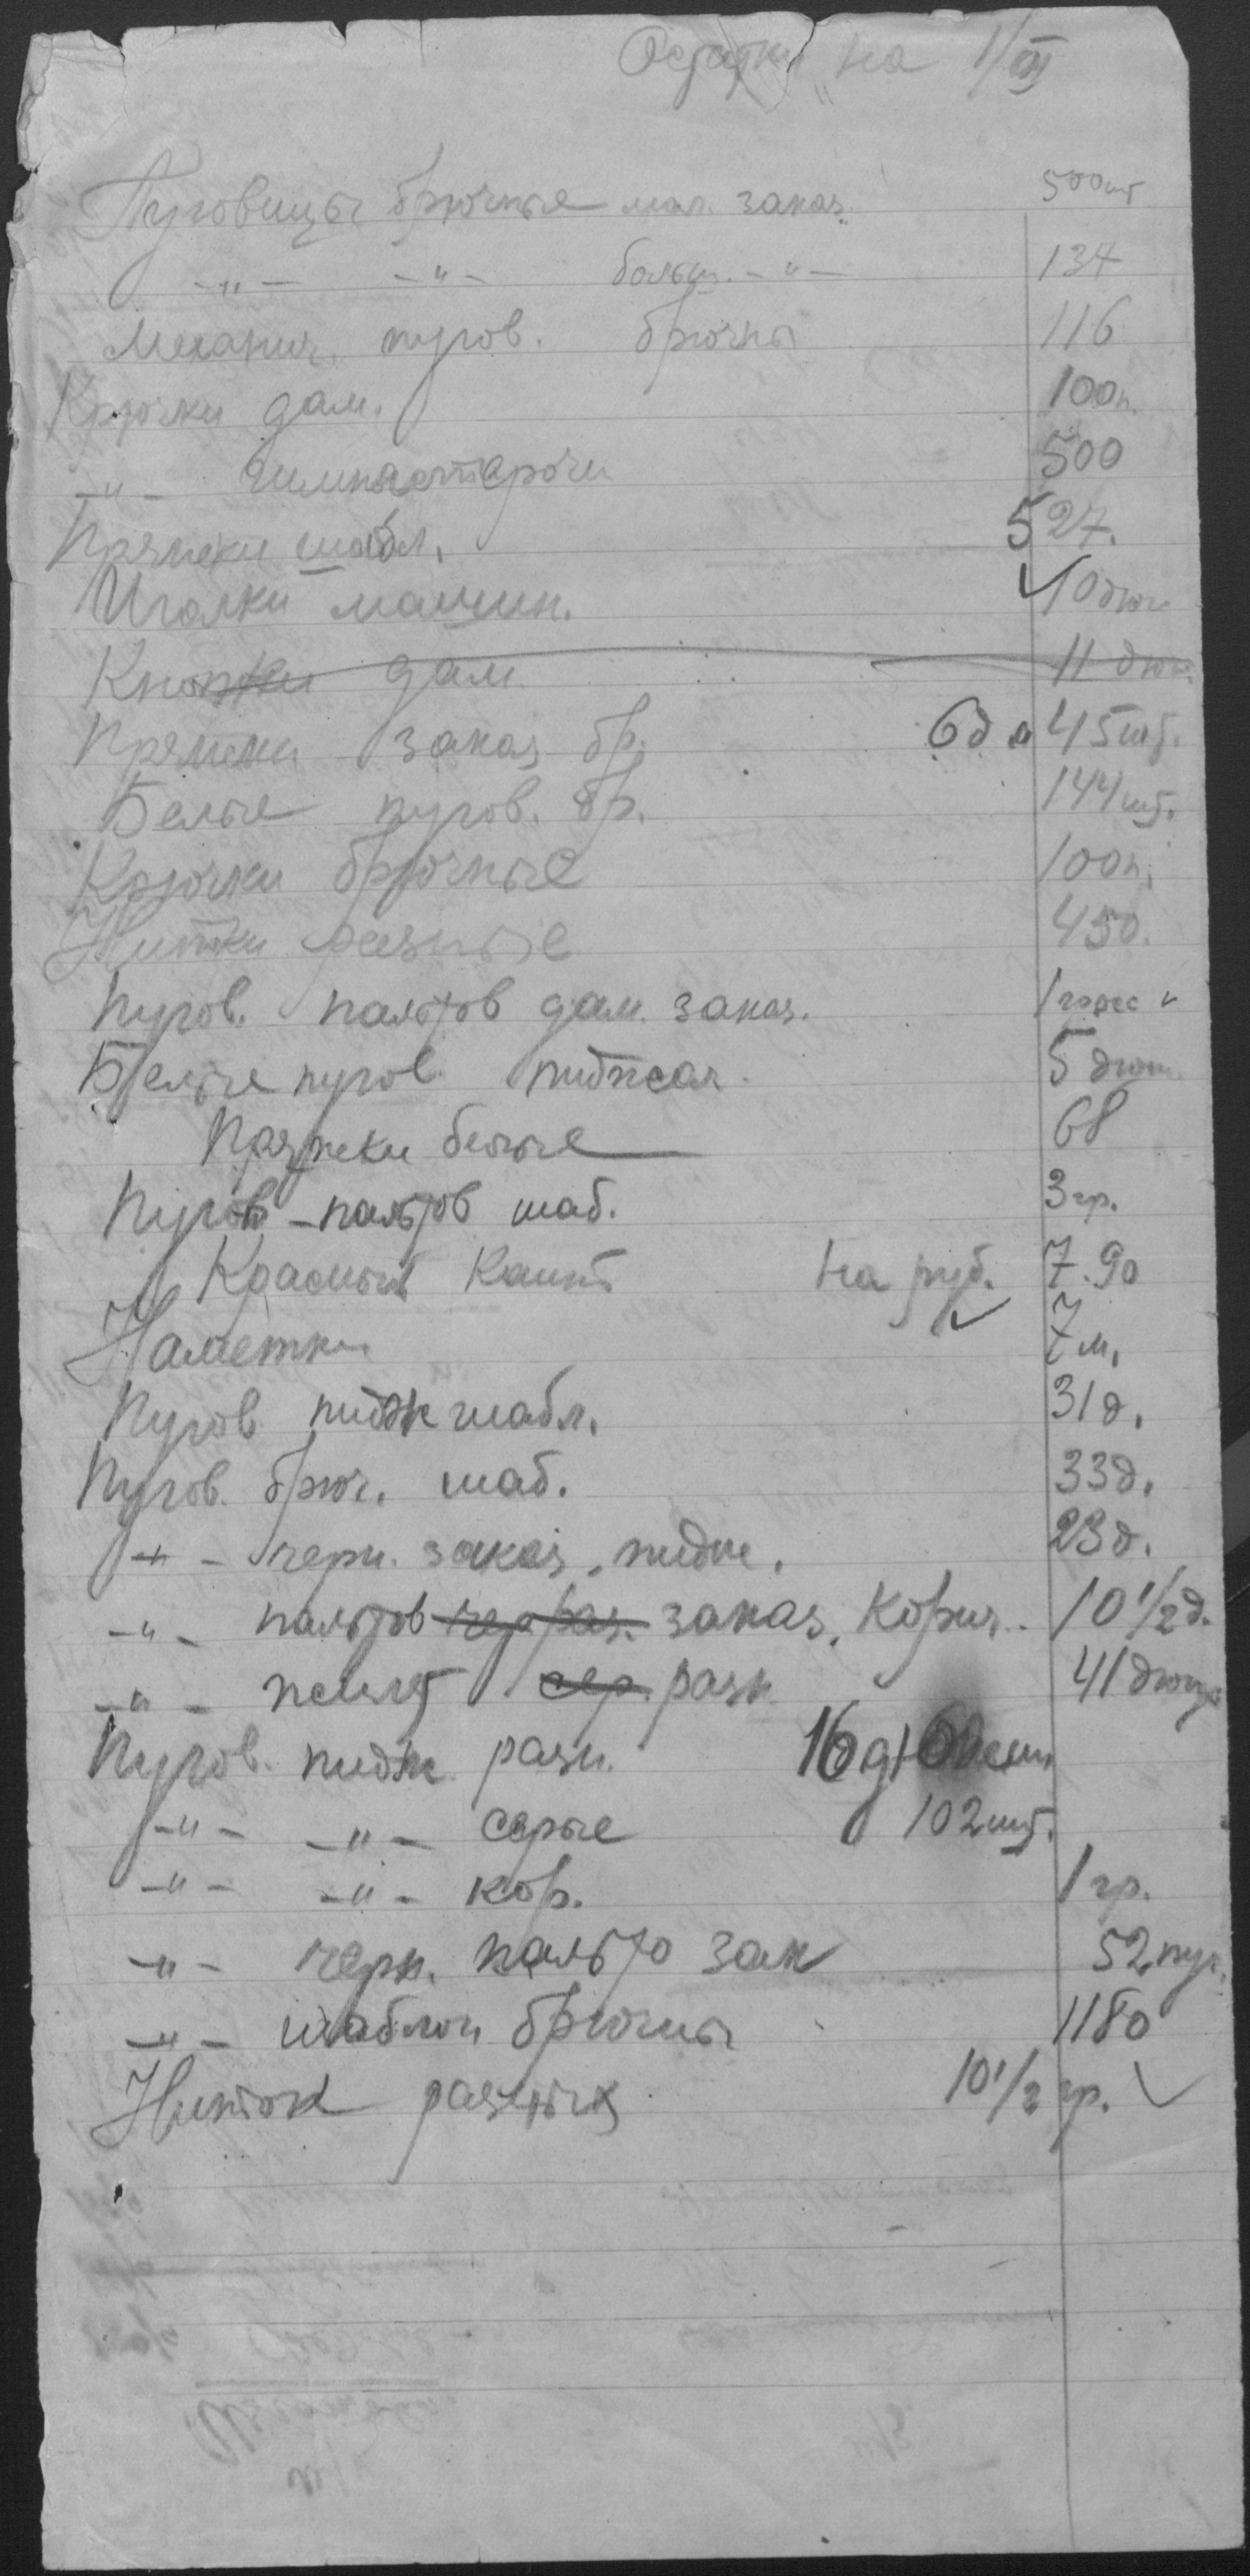 Остатки на 1/III
Пуговицы брючные мал. заказ. 500 шт
-"- -"- больш. -"- 134
Механич. пугов. брючн 116
Крючки дам. 100 п.
-"- гимнастероч 500
Пряжки шабл. 527.
Иголки машин. ✓ 10 дюж
Кнопки дам 11 дюж.
Пряжки заказ. бр. 6 д 45 шт.
Белые пугов. бр. 144 шт.
Крючки брючные 100 п.
Нитки разные 450.
Пугов. пальтов дам. заказ. 1 гросс ✓
Белые пугов. пиджач. 5 дюж.
Пряжки белые 68
Пугов - пальтов шаб. 3 гр.
Красный Кант на руб. 7.90
Наметки ✓ 7 м.
Пугов. пидж шабл. 31 д.
Пугов. брюч. шаб. 33 д.
-"- черн. заказ. пидж. 23 д.
-"- пальтов заказ. Корич. 10 1/2 д.
-"- жилет сер. разн. 41 дюж
Пугов. пидж. разн. 16 д +
-"- -"- серые 102 шт.
-"- -"- кор. 1 гр.
-"- черн. пальто зак 52 пуг.
-"- шаблон брючны 1180
Ниток разных 10 1/2 гр. ✓